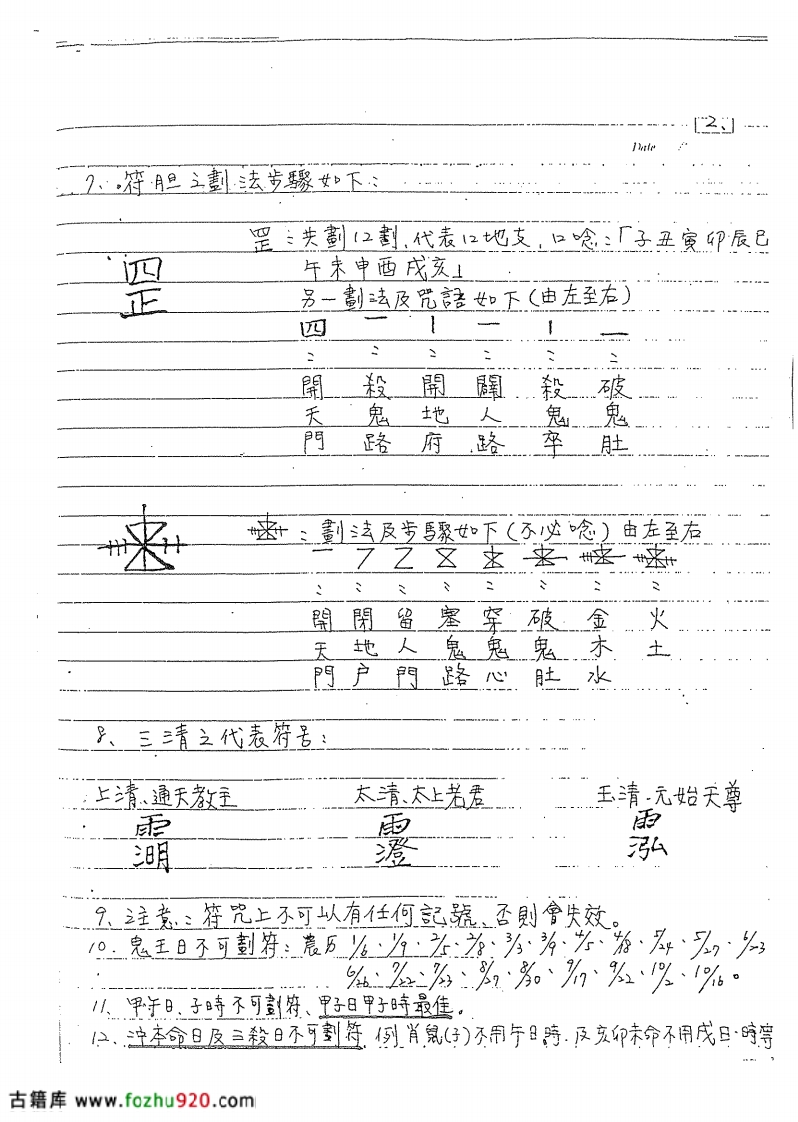 2、
Date
7、符胆之劃法步驟如下：
罡：共劃12劃，代表12地支，口唸：「子丑寅卯辰巳
罡
午未申酉戌亥」
另一劃法及咒語如下（由左至右）
四 一 丨 一 丨 一
： ： ： ： ： ：
開 殺 開 闢 殺 破
天 鬼 地 人 鬼 鬼
門 路 府 路 卒 肚
：劃法及步驟如下（不必唸）由左至右
： ： ： ： ： ： ： ：
開 閉 留 塞 穿 破 金 火
天 地 人 鬼 鬼 鬼 木 土
門 户 門 路 心 肚 水
8、三清之代表符号：
上清、通天教主 太清、太上老君 玉清、元始天尊
9、注意：符咒上不可以有任何記號、否則會失效。
10、鬼王日不可劃符：農历 1/6、1/9、2/5、2/8、3/3、3/9、4/5、4/8、5/24、5/27、6/23
6/26、7/22、7/23、8/27、8/30、9/17、9/22、10/2、10/16。
11、甲午日、子時不可劃符、甲子日甲子時最佳。
12、沖本命日及三殺日不可劃符，例肖鼠(子)不用午日時，及亥卯未命不用戌日、時等
古籍库 www.fozhu920.com